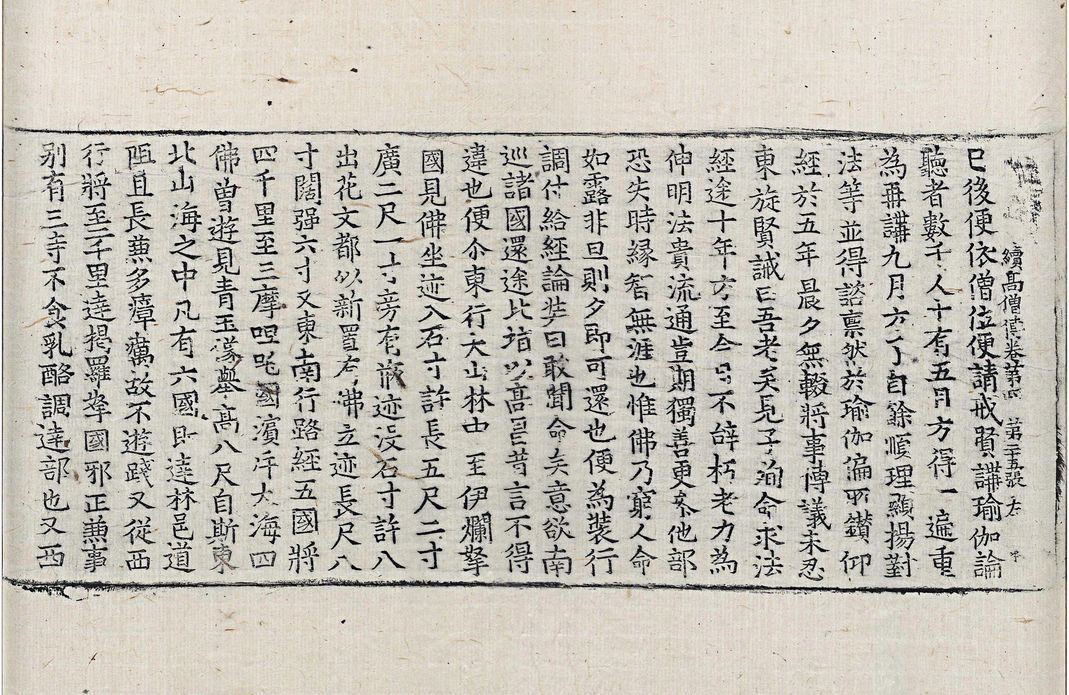 續高僧傳卷第四 第二十五張 左
已後便依僧位便請戒賢講瑜伽論
聽者數千人十有五月方得一遍重
為再講九月方了自餘順理顯揚對
法等並得諮禀然於瑜伽偏所鑽仰
經於五年晨夕無輟將事博議未忍
東旋賢誡曰吾老矣見子殉命求法
經途十年方至今日不辝朽老力為
伸明法貴流通豈期獨善更參他部
恐失時緣智無涯也惟佛乃窮人命
如露非旦則夕即可還也便為裝行
調付給經論奘曰敢聞命矣意欲南
巡諸國還途北指以高昌昔言不得
違也便尒東行大山林中至伊爛拏
國見佛坐迹入石寸許長五尺二寸
廣二尺一寸旁有甁迹没石寸許八
出花文都似新置有佛立迹長尺八
寸闊强六寸又東南行路經五國將
四千里至三摩呾吒國濱斥大海四
佛曾遊見青玉像舉高八尺自斯東
北山海之中凡有六國即達林邑道
阻且長兼多瘴癘故不遊踐又從西
行將至二千里達揭羅拏國邪正兼事
别有三寺不食乳酪調達部也又西